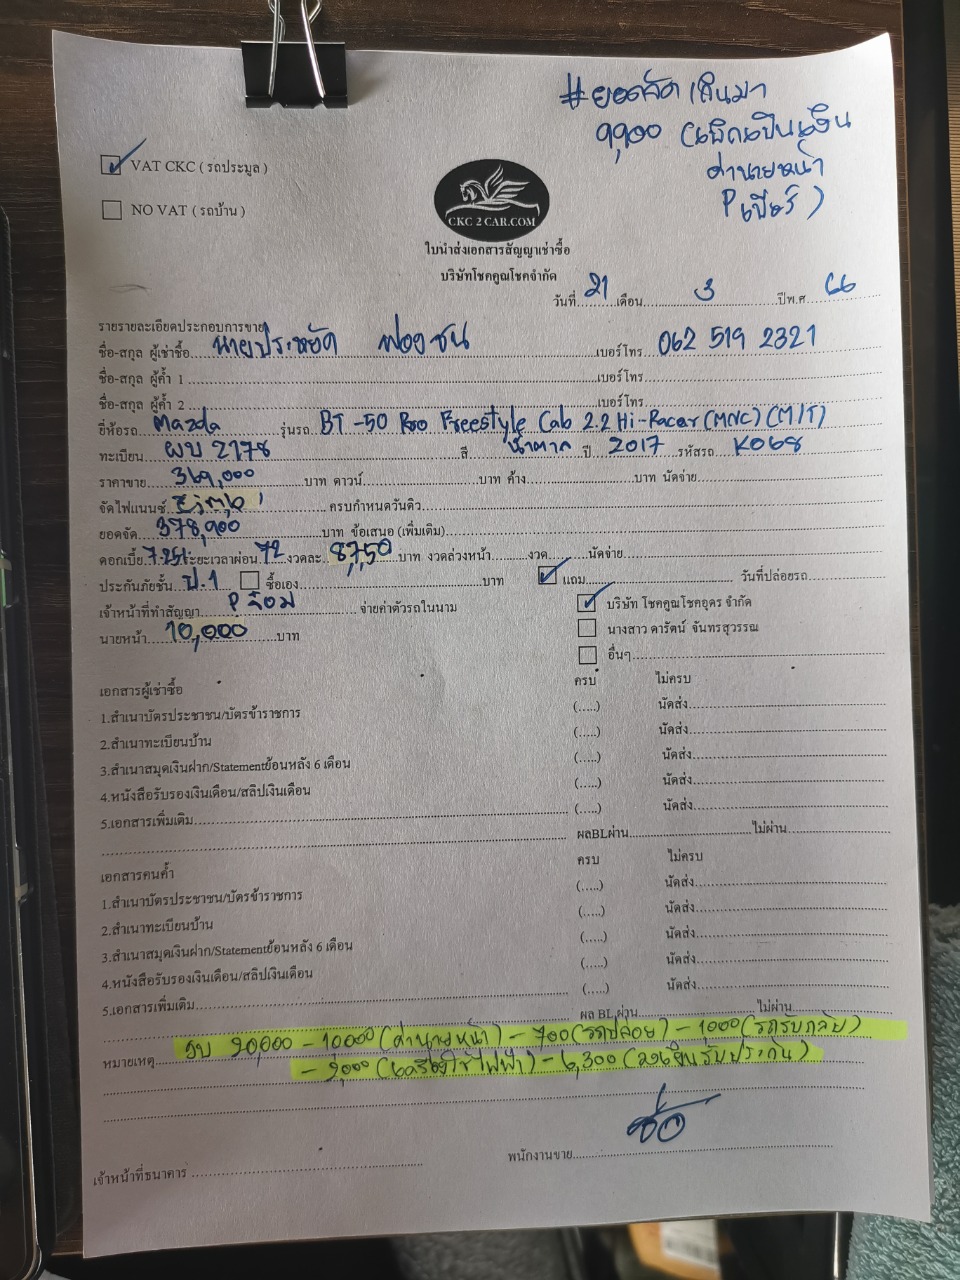 #ยอดจัด เกินมา
9,900 (เบิกเป็นเงิน
ค่านายหน้า
P เบียร์)
VAT CKC ( รถประมูล )
NO VAT ( รถบ้าน )
CKC 2 CAR.COM
ใบนำส่งเอกสารสัญญาเช่าซื้อ
บริษัทโชคคูณโชคจำกัด
วันที่ 21 เดือน 3 ปีพ.ศ 66
รายรายละเอียดประกอบการขาย
ชื่อ-สกุล ผู้เช่าซื้อ นายประหยัด ฟองชน เบอร์โทร 062 519 2321
ชื่อ-สกุล ผู้ค้ำ 1 เบอร์โทร
ชื่อ-สกุล ผู้ค้ำ 2 เบอร์โทร
ยี่ห้อรถ Mazda รุ่นรถ BT-50 Pro Freestyle Cab 2.2 Hi-Racer (MNC) (M/T)
ทะเบียน ผบ 2178 สี น้ำตาล ปี 2017 รหัสรถ K068
ราคาขาย 369,000 บาท ดาวน์ บาท ค้าง บาท นัดจ่าย
จัดไฟแนนซ์ ครบกำหนดวันดิว
ยอดจัด 378,900 บาท ข้อเสนอ (เพิ่มเติม)
ดอกเบี้ย 7.25% ระยะเวลาผ่อน 72 งวดละ 8,750 บาท งวดล่วงหน้า งวด นัดจ่าย
ประกันภัยชั้น ป.1 ซื้อเอง บาท แถม วันที่ปล่อยรถ
เจ้าหน้าที่ทำสัญญา P จ๊อบ จ่ายค่าตัวรถในนาม บริษัท โชคคูณโชคอุดร จำกัด
นายหน้า 10,000 บาท นางสาว ดารัตน์ จันทรสุวรรณ
อื่นๆ
เอกสารผู้เช่าซื้อ ครบ ไม่ครบ
1.สำเนาบัตรประชาชน/บัตรข้าราชการ (.....) นัดส่ง
2.สำเนาทะเบียนบ้าน (.....) นัดส่ง
3.สำเนาสมุดเงินฝาก/Statementย้อนหลัง 6 เดือน (.....) นัดส่ง
4.หนังสือรับรองเงินเดือน/สลิปเงินเดือน (.....) นัดส่ง
5.เอกสารเพิ่มเติม (.....) นัดส่ง
ผลBLผ่าน ไม่ผ่าน
เอกสารคนค้ำ ครบ ไม่ครบ
1.สำเนาบัตรประชาชน/บัตรข้าราชการ (.....) นัดส่ง
2.สำเนาทะเบียนบ้าน (.....) นัดส่ง
3.สำเนาสมุดเงินฝาก/Statementย้อนหลัง 6 เดือน (.....) นัดส่ง
4.หนังสือรับรองเงินเดือน/สลิปเงินเดือน (.....) นัดส่ง
5.เอกสารเพิ่มเติม (.....) นัดส่ง
ผล BL ผ่าน ไม่ผ่าน
หมายเหตุ งบ 20,000 - 10000 (ค่านายหน้า) - 700 (รถปล่อย) - 1000 (รถรับกลับ)
- 2,000 (เครื่องใช้ไฟฟ้า) - 6,300 (ลงเงินรับประกัน)
พนักงานขาย
เจ้าหน้าที่ธนาคาร